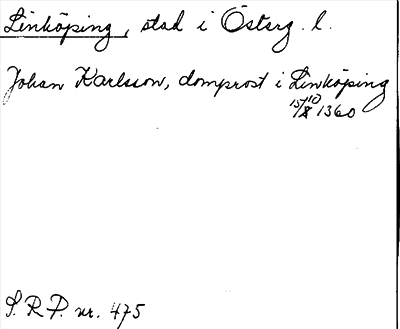 Linköping, stad i Österg. l.
Johan Karlsson, domprost i Linköping
15/10 1360
S. R. P. nr. 475